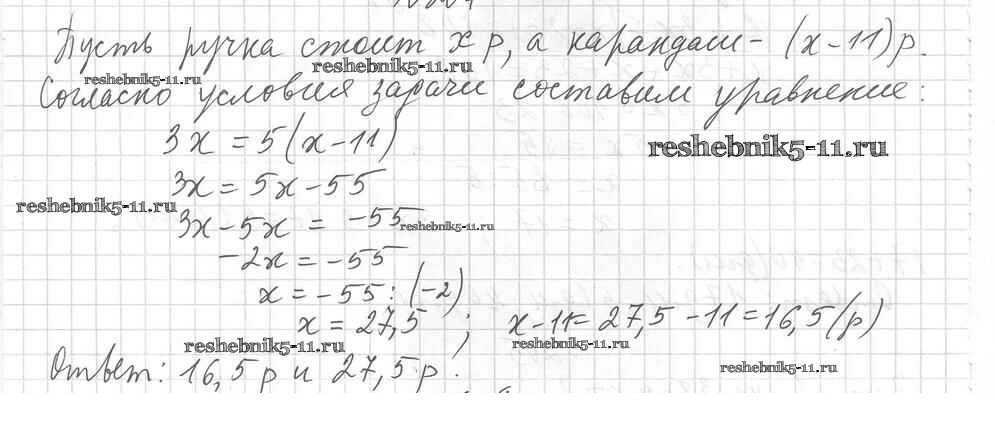 Пусть ручка стоит x р, а карандаш - (x-11) р.
reshebnik5-11.ru
reshebnik5-11.ru
Согласно условия задачи составим уравнение:
3x = 5(x-11)
reshebnik5-11.ru
3x = 5x-55
reshebnik5-11.ru
3x-5x = -55
reshebnik5-11.ru
-2x = -55
x = -55:(-2)
x = 27,5 ; x-11= 27,5 -11=16,5(р)
reshebnik5-11.ru
reshebnik5-11.ru
Ответ: 16,5 р и 27,5 р.
reshebnik5-11.ru